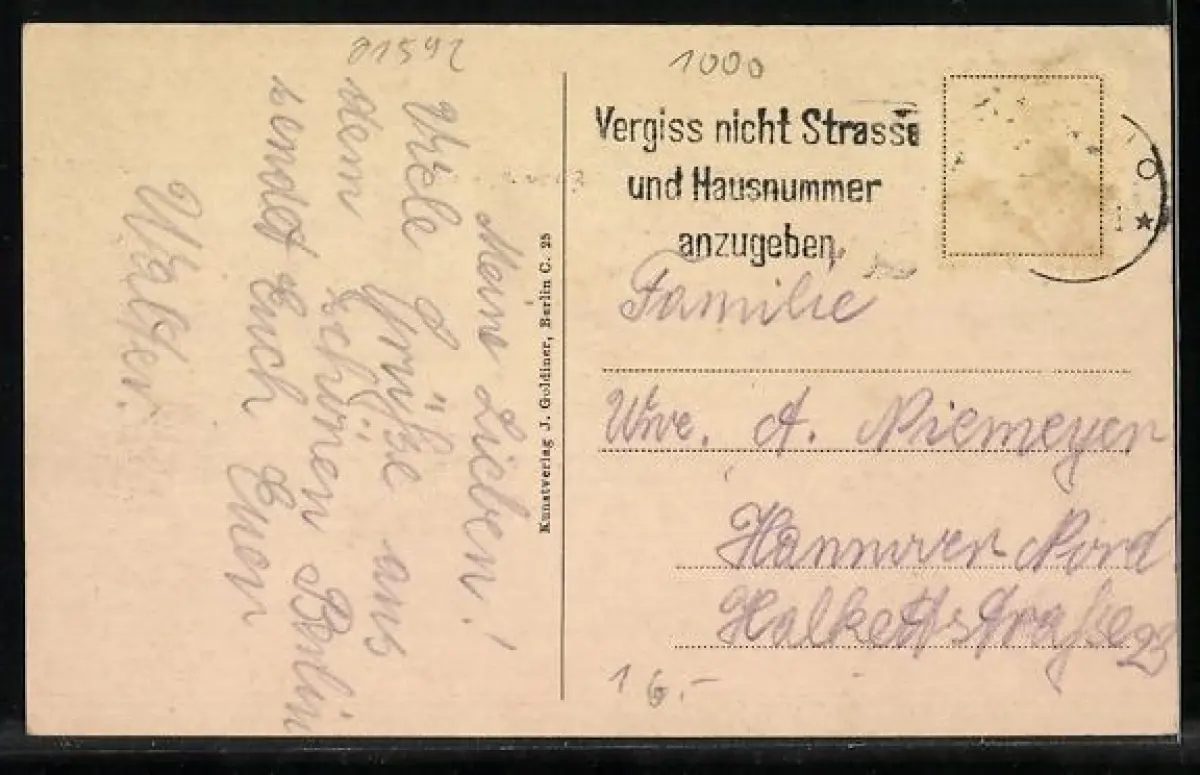 01592
Meine Lieben!
Viele Grüße aus
dem schönen Berlin
sendet Euch Euer
Walter.
Kunstverlag J. Goldiner, Berlin C. 25
1000
Vergiss nicht Strasse
und Hausnummer
anzugeben
Familie
Wwe. A. Niemeyer
Hannover Nord
Halkettstraße 23
16.-